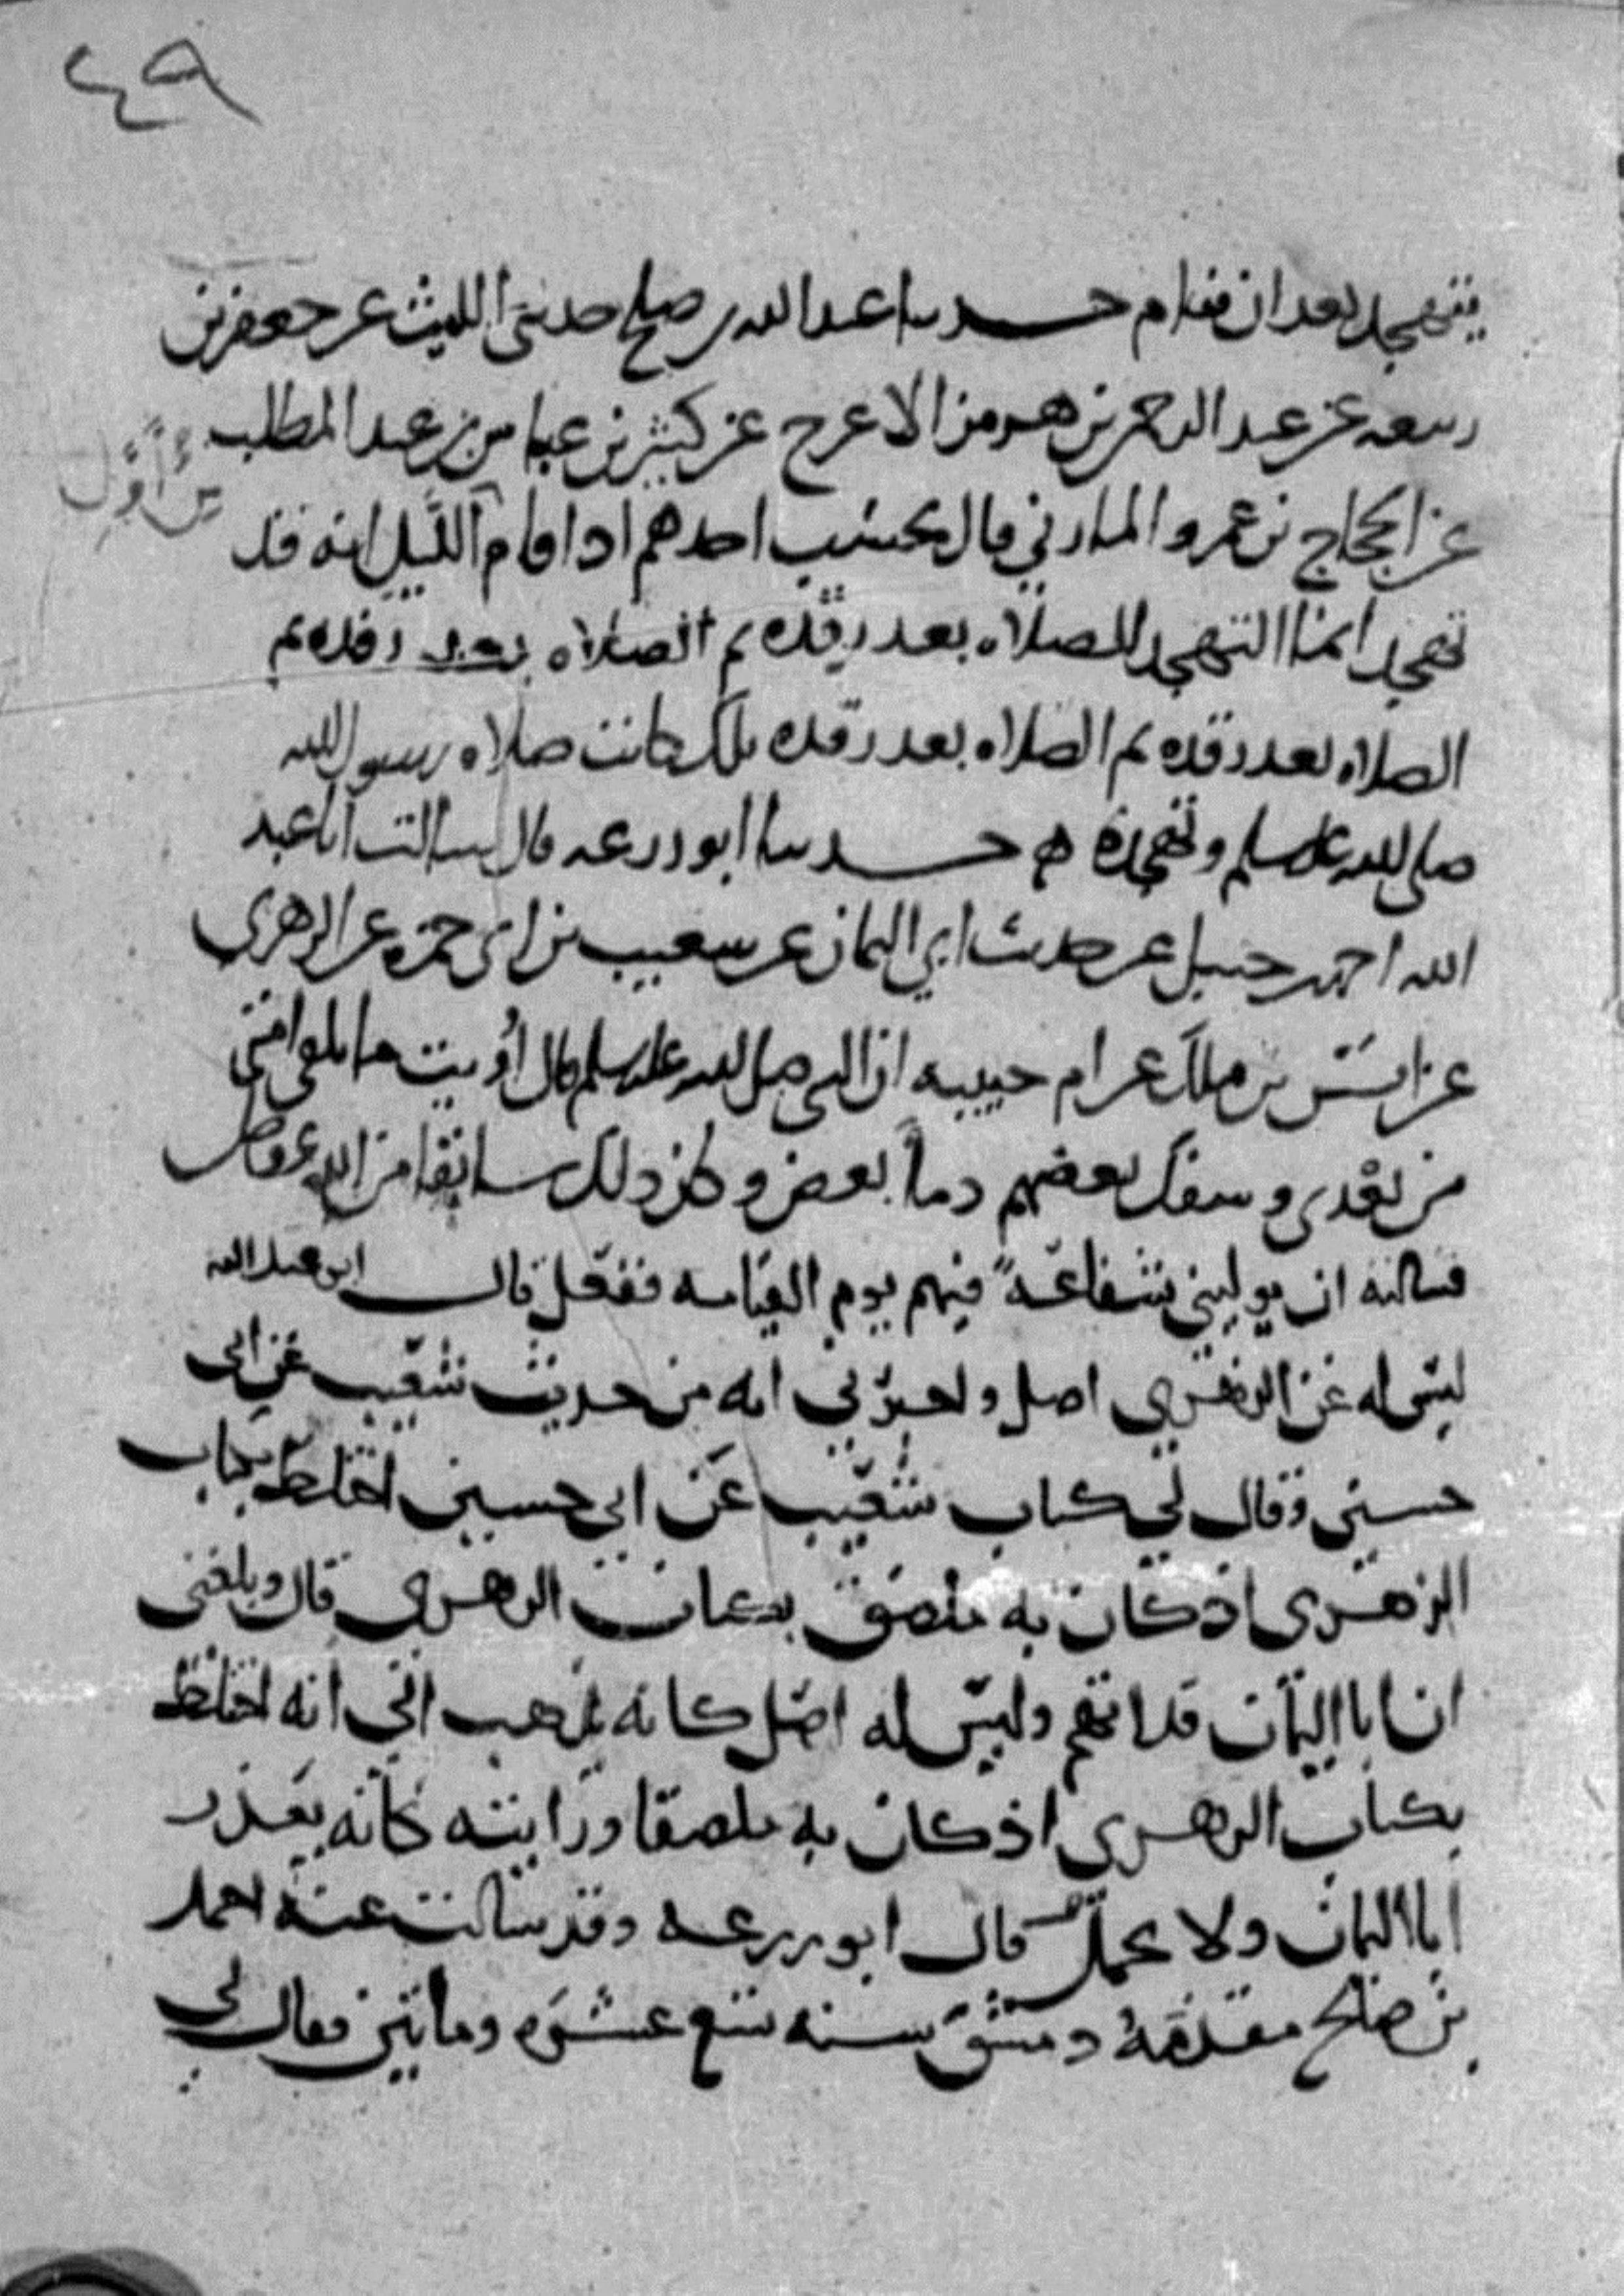 ٤٩
يتهجد بعد ان ينام حدثنا عبد الله بن صلح حدثني الليث عن جعفر بن
ربيعه عن عبد الرحمن بن هرمز الاعرج عن كثير بن عباس بن عبد المطلب
عن الحجاج بن عمرو المازني قال يحسب احدهم اذا قام الليل انه قد
من اول
تهجد انما التهجد للصلاه بعد رقده ثم الصلاه بعد رقده ثم
الصلاه بعد رقده ثم الصلاه بعد رقده تلك كانت صلاه رسول الله
صلى الله عليه وسلم وتهجده حدثنا ابو زرعه قال سالت ابا عبد
الله احمد بن حنبل عن حديث ابي اليمان عن شعيب بن ابي حمزه عن الزهري
عن انس بن ملك عن ام حبيبه ان النبي صلى الله عليه وسلم قال أريت ما تلقى امتي
من بعدي وسفك بعضهم دماء بعض وكان ذلك سابقا من الله عز وجل
فسالته ان يوليني شفاعة فيهم يوم القيامه ففعل قال ابو عبد الله
ليس له عن الزهري اصل واخبرني انه من حديث شعيب عن ابي
حسين وقال لي كتاب شعيب عن ابي حسين اختلط بكتاب
الزهري اذ كان به ملصق بكتاب الزهري قال وبلغني
ان ابا اليمان قد اتهم وليس له اصل كانه يذهب الى انه اختلط
بكتاب الزهري اذ كان به ملصقا ورايته كانه يعذر
ابا اليمان ولا يحمل قال ابو زرعه وقد سالت عنه احمد
بن صالح مقدمه دمشق سنه سبع عشره ومائتين فقال لي